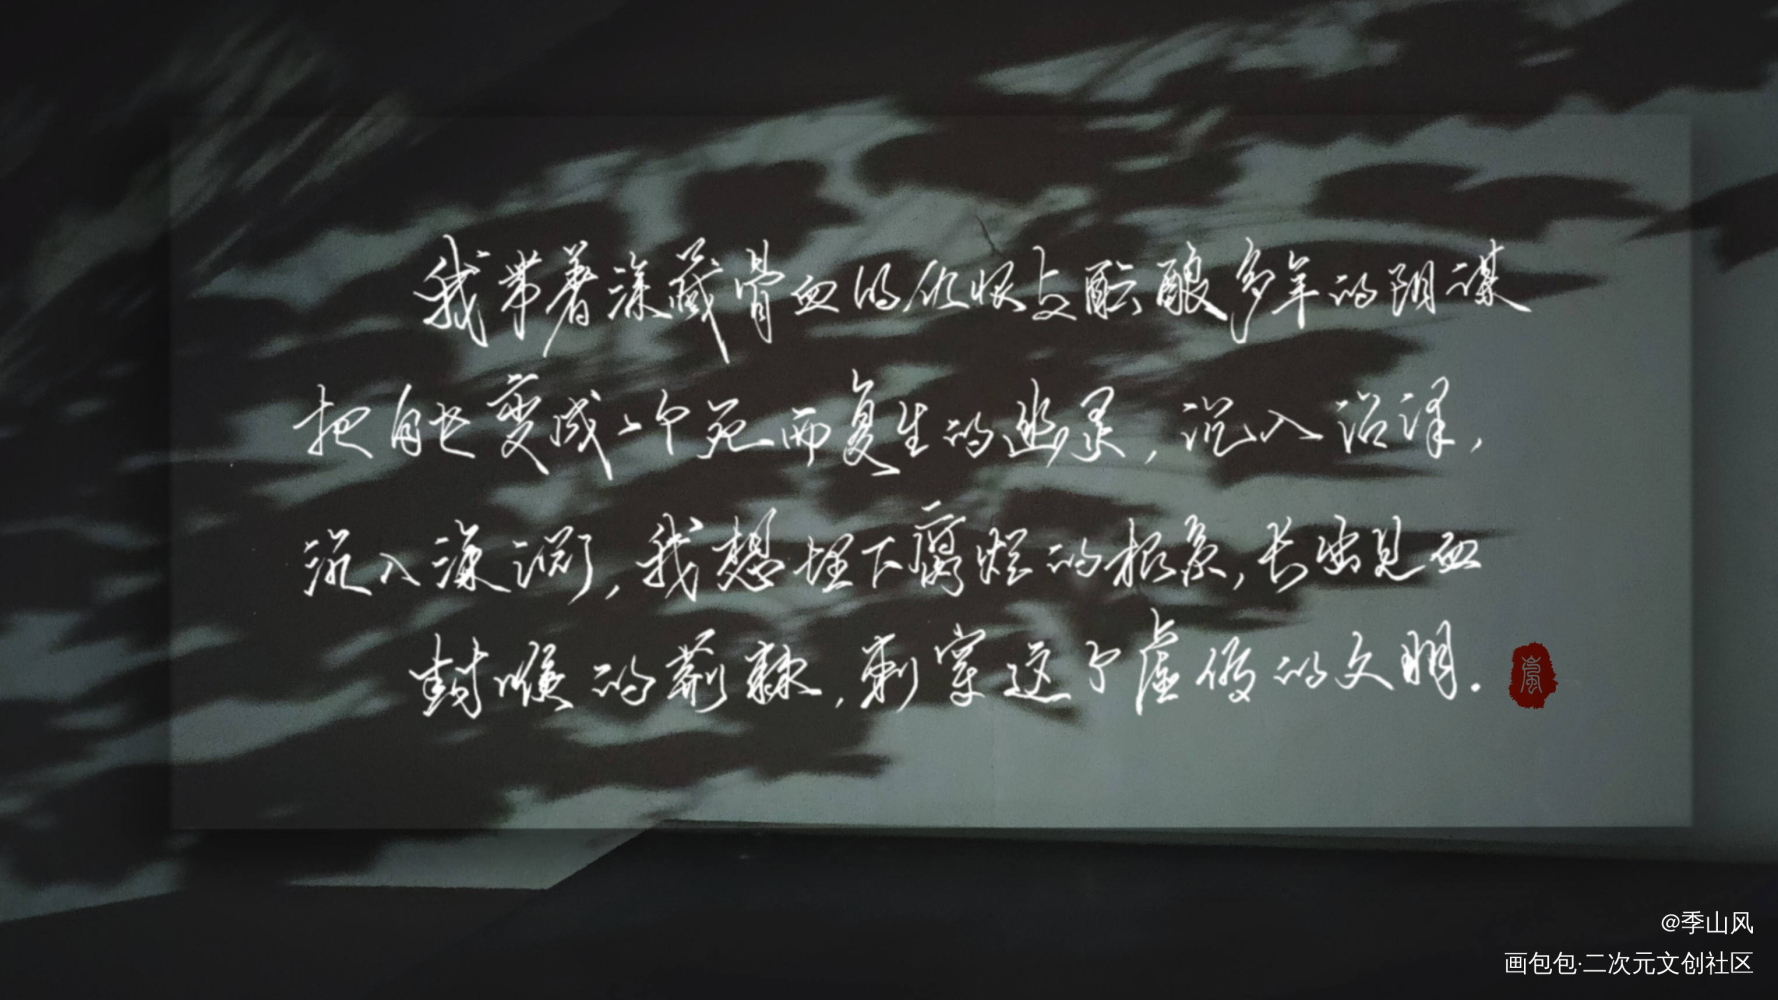 我带着深藏骨血的仇恨与酝酿多年的阴谋
把自己变成一个死而复生的幽灵，沉入沼泽，
沉入深渊，我想埋下腐烂的根系，长出见血
封喉的荆棘，刺穿这个虚假的文明.
岚
@季山风
画包包·二次元文创社区